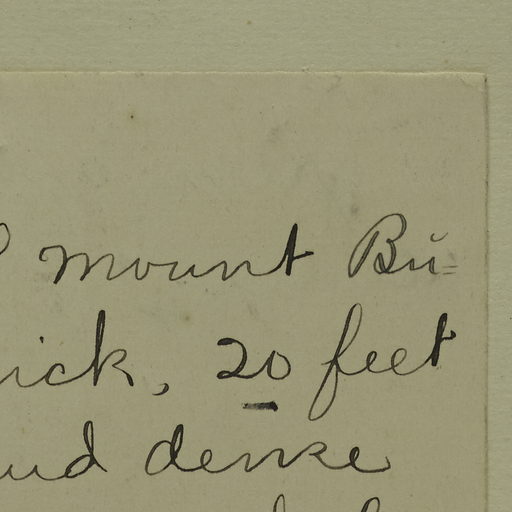 mount Bu=
ick, 20 feet
ud dense